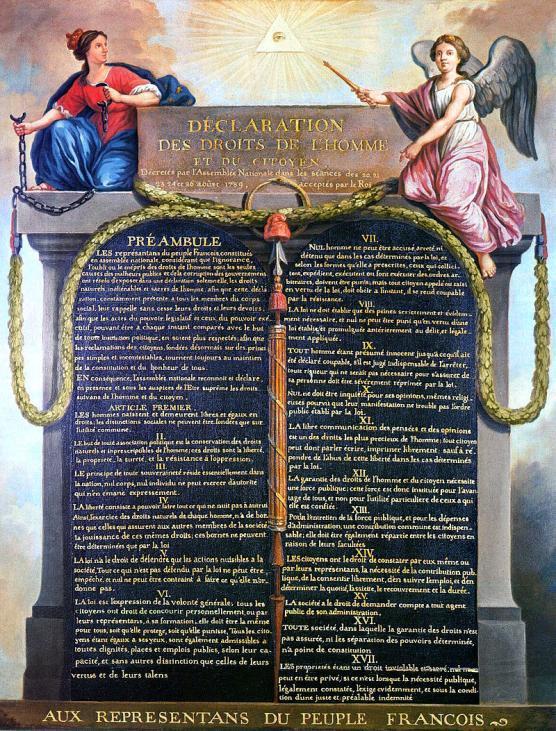 DÉCLARATION
DES DROITS DE L'HOMME
ET DU CITOYEN
Décretés par l'Assemblée Nationale dans les séances des 20, 21
23, 24 et 26 août 1789, acceptés par le Roi
PRÉAMBULE
LES représentans du peuple François, constitués
en assemblée nationale, considérant que l'ignorance,
l'oubli ou le mépris des droits de l'homme sont les seules
causes des malheurs publics et de la corruption des gouvernemens
ont résolu d'exposer dans une déclaration solemnelle, les droits
naturels, inaliénables et sacrés de l'homme; afin que cette décla
ration, constamment présente à tous les membres du corps
social, leur rappelle sans cesse leurs droits et leurs devoirs;
afin que les actes du pouvoir législatif et ceux du pouvoir exé
cutif, pouvant être à chaque instant comparés avec le but
de toute institution politique, en soient plus respectés; afin que
les réclamations des citoyens, fondées désormais sur des prin
pes simples et incontestables, tournent toujours au maintien
de la constitution et du bonheur de tous.
EN conséquence, l'assemblée nationale reconnoit et déclare,
en presence et sous les auspices de l'Etre suprême les droits
suivans de l'homme et du citoyen.
ARTICLE PREMIER.
LES hommes naissent et demeurent libres et égaux en
droits; les distinctions sociales ne peuvent être fondées que sur
l'utilité commune.
II.
LE but de toute association politique est la conservation des droits
naturels et imprescriptibles de l'homme; ces droits sont la liberté,
la propriété, la sureté, et la résistance à l'oppression.
III.
LE principe de toute souveraineté réside essentiellement dans
la nation, nul corps, nul individu ne peut exercer d'autorité
qui n'en émane expressement.
IV.
LA liberté consiste à pouvoir faire tout ce qui ne nuit pas à autrui
Ainsi, l'exercice des droits naturels de chaque homme, n'a de bor
nes que celles qui assurent aux autres membres de la société
la jouissance de ces mêmes droits; ces bornes ne peuvent
être déterminées que par la loi
V.
LA loi n'a le droit de défendre que les actions nuisibles à la
société. Tout ce qui n'est pas défendu par la loi ne peut être
empêché, et nul ne peut être contraint à faire ce qu'elle n'or-
donne pas.
VI.
LA loi est l'expression de la volonté générale; tous les
citoyens ont droit de concourir personnellement, ou par
leurs représentans, à sa formation; elle doit être la même
pour tous, soit qu'elle protege, soit qu'elle punisse. Tous les cito
yens étant égaux à ses yeux, sont également admissibles à
toutes dignités, places et emplois publics, selon leur ca
pacité, et sans autres distinction que celles de leurs
vertus et de leurs talens
VII.
NUL homme ne peut être accusé, arreté, ni
détenu que dans les cas déterminés par la loi, et
selon les formes qu'elle a prescrites, ceux qui sollici-
tent, expédient, exécutent ou font exécuter des ordres ar-
bitraires, doivent être punis; mais tout citoyen appelé ou saisi
en vertu de la loi, doit obéir à l'instant, il se rend coupable
par la résistance.
VIII.
LA loi ne doit établir que des peines strictement et évidem-
ment nécessaire, et nul ne peut être puni qu'en vertu d'une
loi établie et promulguée antérieurement au délit, et légale-
ment appliquée.
IX.
TOUT homme étant présumé innocent jusqu'à ce qu'il ait
été déclaré coupable, s'il est jugé indispensable de l'arrêter,
toute rigueur qui ne serait pas nécessaire pour s'assurer de
sa personne doit être sévèrement réprimée par la loi.
X.
NUL ne doit être inquiété pour ses opinions, mêmes religi
euses pourvu que leur manifestation ne trouble pas l'ordre
public établi par la loi.
XI.
LA libre communication des pensées et des opinions
est un des droits les plus precieux de l'homme; tout citoyen
peut donc parler, écrire, imprimer librement: sauf à ré-
pondre de l'abus de cette liberté dans les cas déterminés
par la loi.
XII.
LA garantie des droits de l'homme et du citoyen nécessite
une force publique; cette force est donc instituée pour l'avan
tage de tous, et non pour l'utilité particuliere de ceux a qui
elle est confiée.
XIII.
Pour l'entretien de la force publique, et pour les dépenses
d'administration, une contribution commune est indispen-
sable; elle doit être également répartie entre les citoyens en
raison de leurs facultées
XIV.
LES citoyens ont le droit de constater par eux même ou
par leurs représentans, la nécessité de la contribution pub
lique, de la consentir librement, d'en suivre l'emploi, et d'en
déterminer la quotité, l'assiette, le recouvrement et la durée.
XV.
LA société a le droit de demander compte a tout agent
public de son administration.
XVI.
TOUTE société, dans laquelle la garantie des droits n'est
pas assurée, ni les séparation des pouvoirs déterminée,
n'a point de constitution
XVII.
LES proprietés étant un droit inviolable et sacré, nul ne
peut en être privé, si ce n'est lorsque la nécessité publique,
légalement constatée, l'exige evidemment, et sous la condi-
tion d'une juste et préalable indemnité
AUX REPRESENTANS DU PEUPLE FRANCOIS